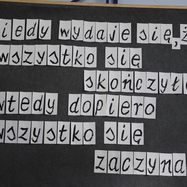 iedy wydaje się, ż
wszystko się
skończył
wtedy dopiero
wszystko się
zaczyna